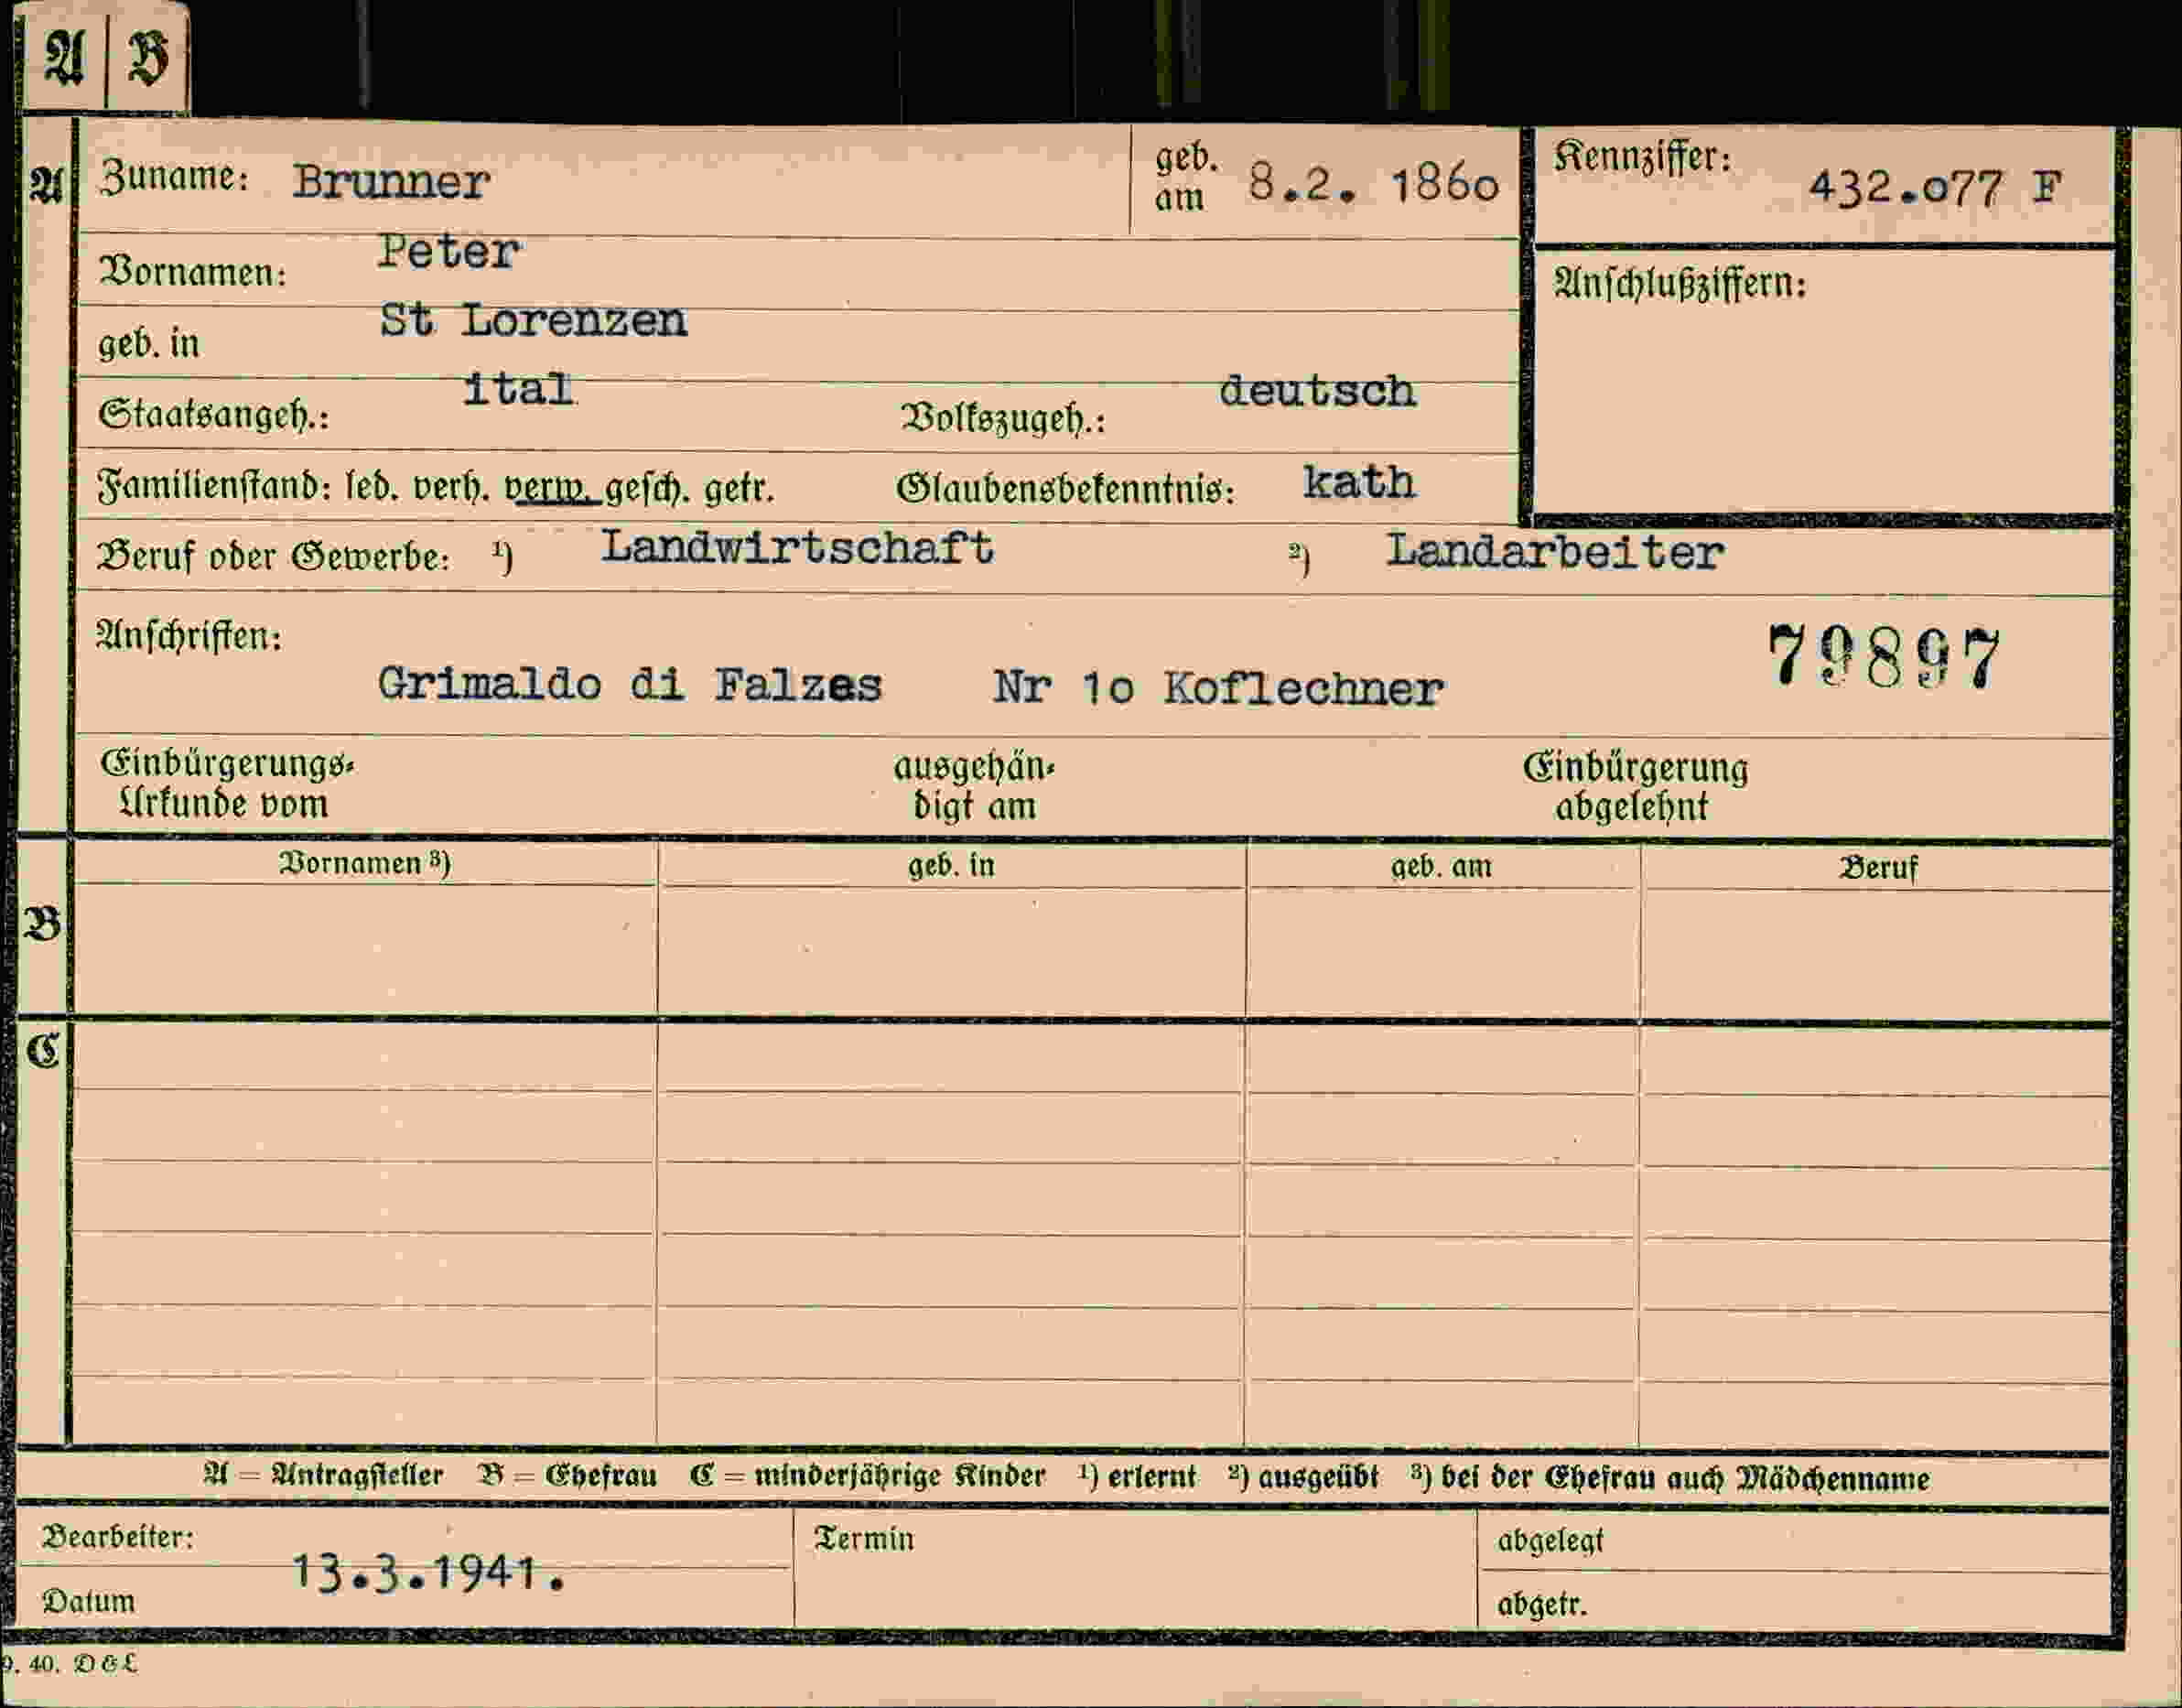 A B
A Zuname: Brunner geb. am 8.2. 1860 Kennziffer: 432.077 F
Vornamen: Peter Anschlußziffern:
geb. in St Lorenzen
Staatsangeh.: ital Volkszugeh.: deutsch
Familienstand: led. verh. verw. gesch. getr. Glaubensbekenntnis: kath
Beruf oder Gewerbe: ¹) Landwirtschaft ²) Landarbeiter
Anschriften: 79897
Grimaldo di Falzes Nr 1o Koflechner
Einbürgerungs- ausgehän- Einbürgerung
Urkunde vom digt am abgelehnt
Vornamen ³) geb. in geb. am Beruf
B
C
A = Antragsteller B = Ehefrau C = minderjährige Kinder ¹) erlernt ²) ausgeübt ³) bei der Ehefrau auch Mädchenname
Bearbeiter: Termin abgelegt
13.3.1941.
Datum abgetr.
9. 40. D & L